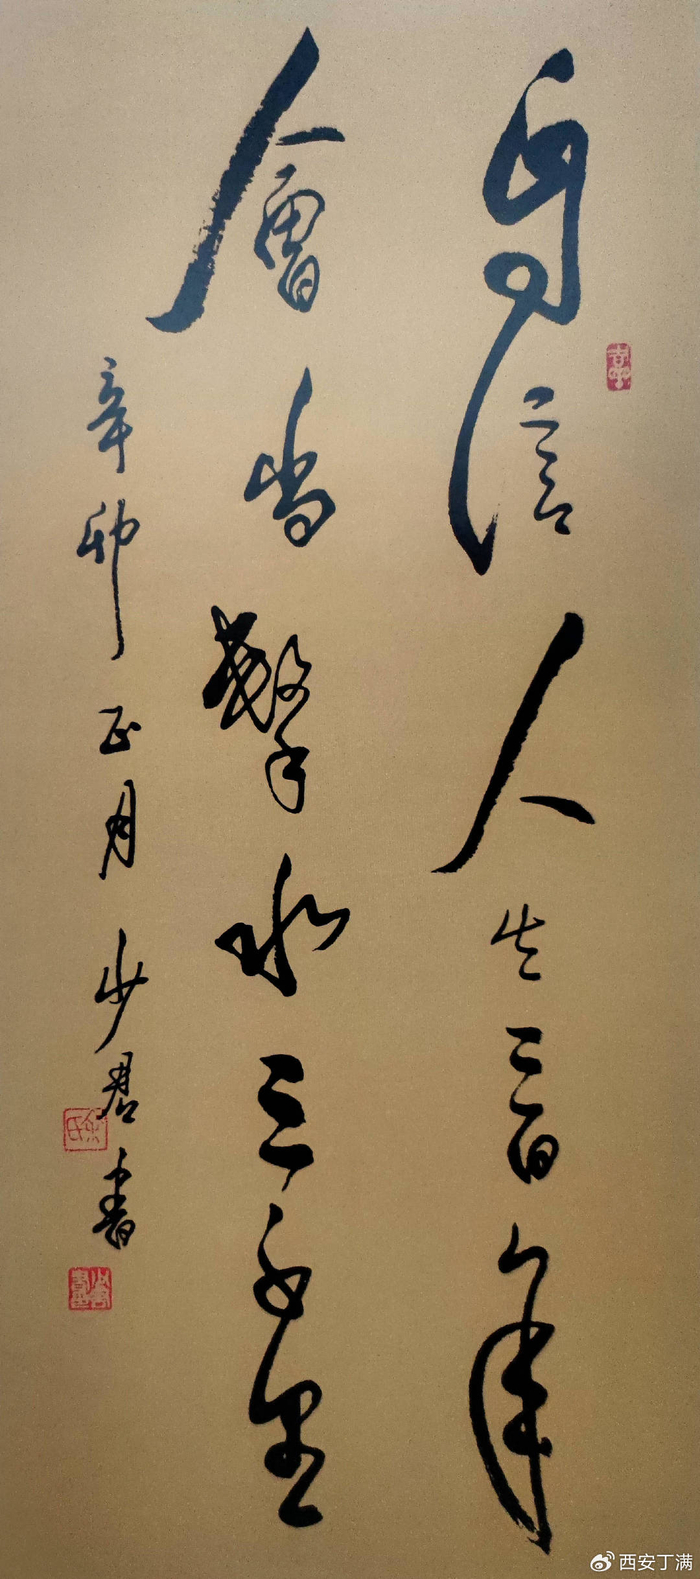 自信人生二百年
會當擊水三千里
辛卯正月少君書
西安丁满